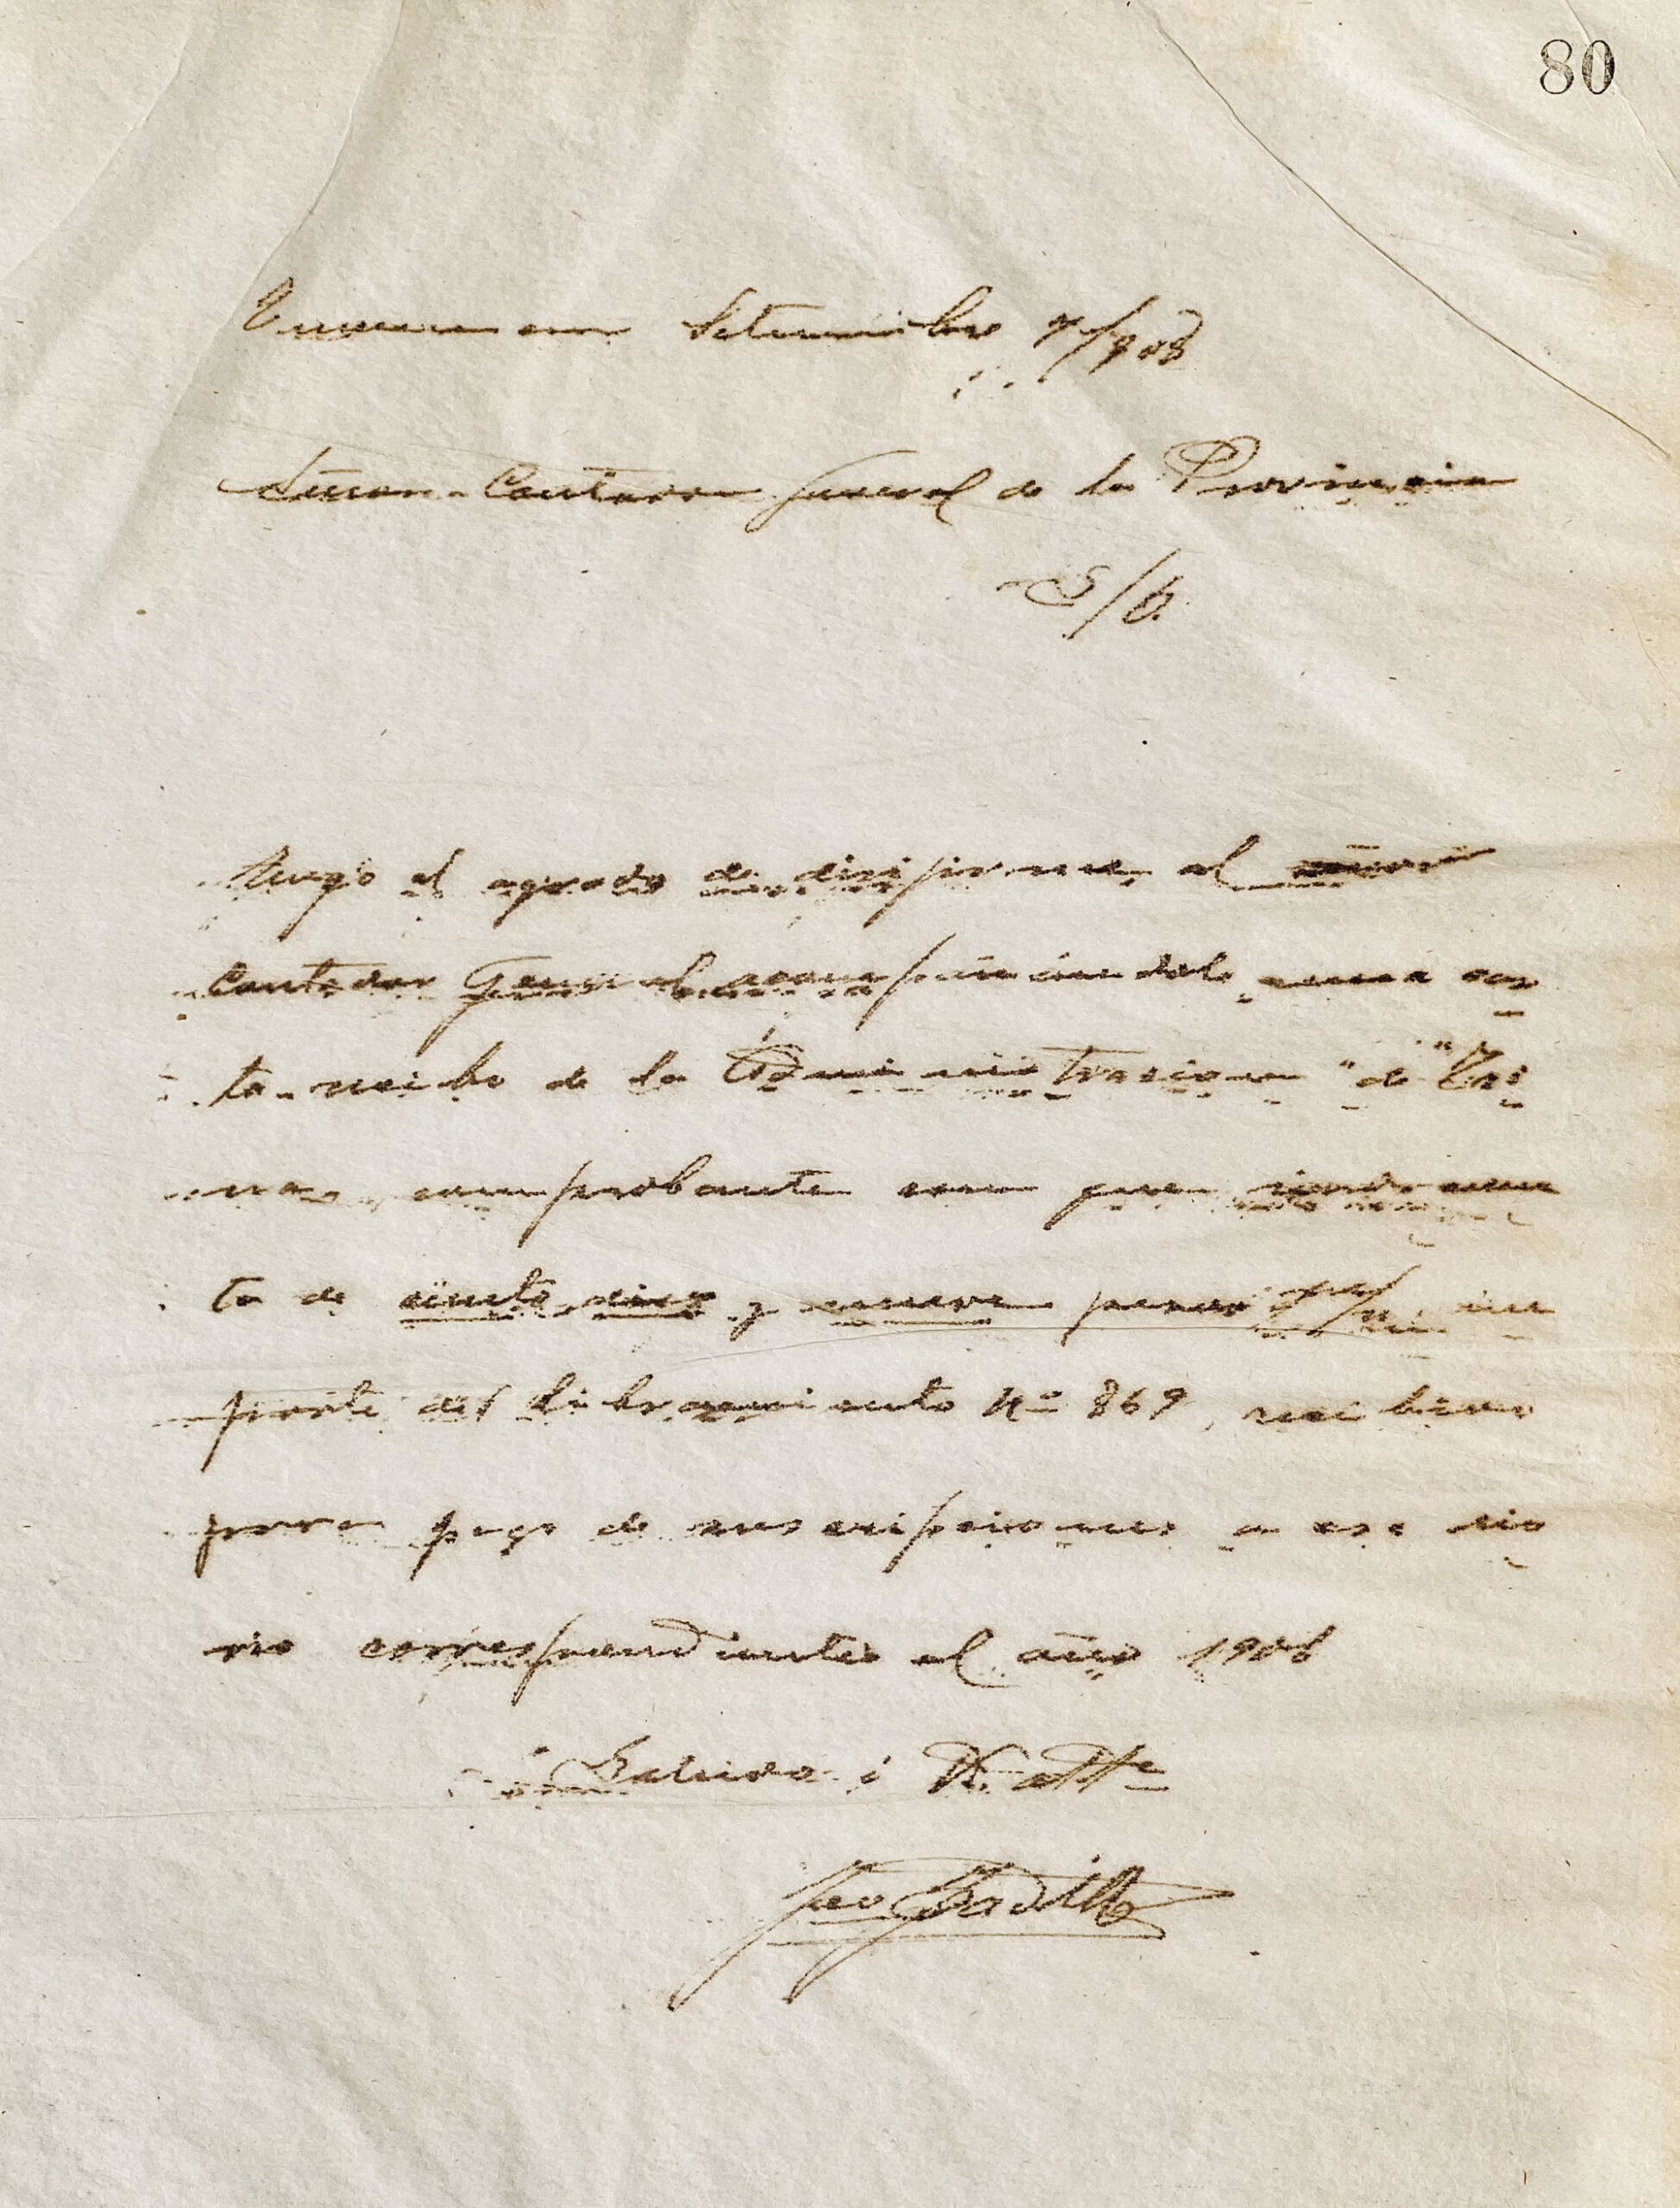 80
Tucuman Setiembre 7/908
Señor Contador General de la Provincia
S/D.
Tengo el agrado de dirijirme al señor
Contador General acompañandole
ta recibo de la Administracion "de"
comprobante con que
ta de ciento diez y nueve pesos m/n im
porte del libramiento Nº 869, recibido
para pago de suscripciones a ese dia
rio correspondientes al año 1908
Saludo á Vd. attè
Padilla